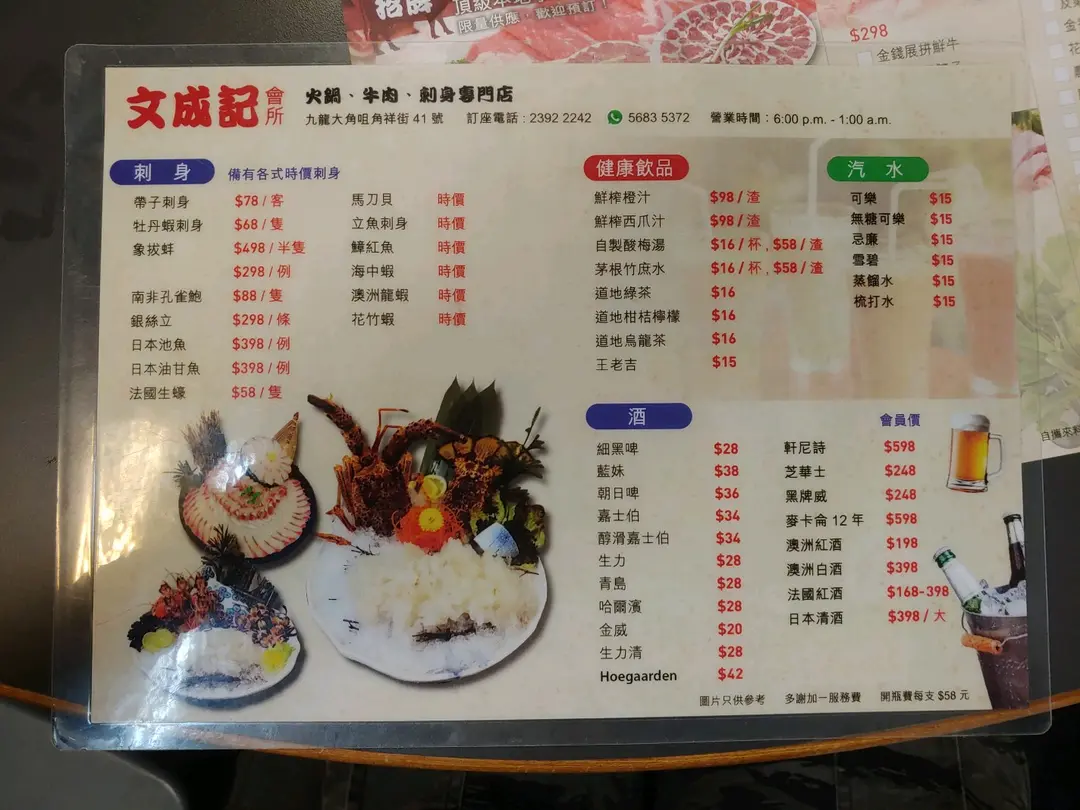 招牌
限量供應，歡迎預訂！
$298
金錢展拼鮮牛
文成記 會所
火鍋、牛肉、刺身專門店
九龍大角咀角祥街 41 號 訂座電話 : 2392 2242 5683 5372 營業時間 : 6:00 p.m. - 1:00 a.m.
刺 身 備有各式時價刺身
帶子刺身 $78 / 客
牡丹蝦刺身 $68 / 隻
象拔蚌 $498 / 半隻
$298 / 例
南非孔雀鮑 $88 / 隻
銀絲立 $298 / 條
日本池魚 $398 / 例
日本油甘魚 $398 / 例
法國生蠔 $58 / 隻
馬刀貝 時價
立魚刺身 時價
鱆紅魚 時價
海中蝦 時價
澳洲龍蝦 時價
花竹蝦 時價
健康飲品
鮮榨橙汁 $98 / 渣
鮮榨西瓜汁 $98 / 渣
自製酸梅湯 $16 / 杯 , $58 / 渣
茅根竹庶水 $16 / 杯 , $58 / 渣
道地綠茶 $16
道地柑桔檸檬 $16
道地烏龍茶 $16
王老吉 $15
汽 水
可樂 $15
無糖可樂 $15
忌廉 $15
雪碧 $15
蒸餾水 $15
梳打水 $15
酒
細黑啤 $28
藍妹 $38
朝日啤 $36
嘉士伯 $34
醇滑嘉士伯 $34
生力 $28
青島 $28
哈爾濱 $28
金威 $20
生力清 $28
Hoegaarden $42
會員價
軒尼詩 $598
芝華士 $248
黑牌威 $248
麥卡侖 12 年 $598
澳洲紅酒 $198
澳洲白酒 $398
法國紅酒 $168-398
日本清酒 $398 / 大
圖片只供參考 多謝加一服務費 開瓶費每支 $58 元
自攜來料